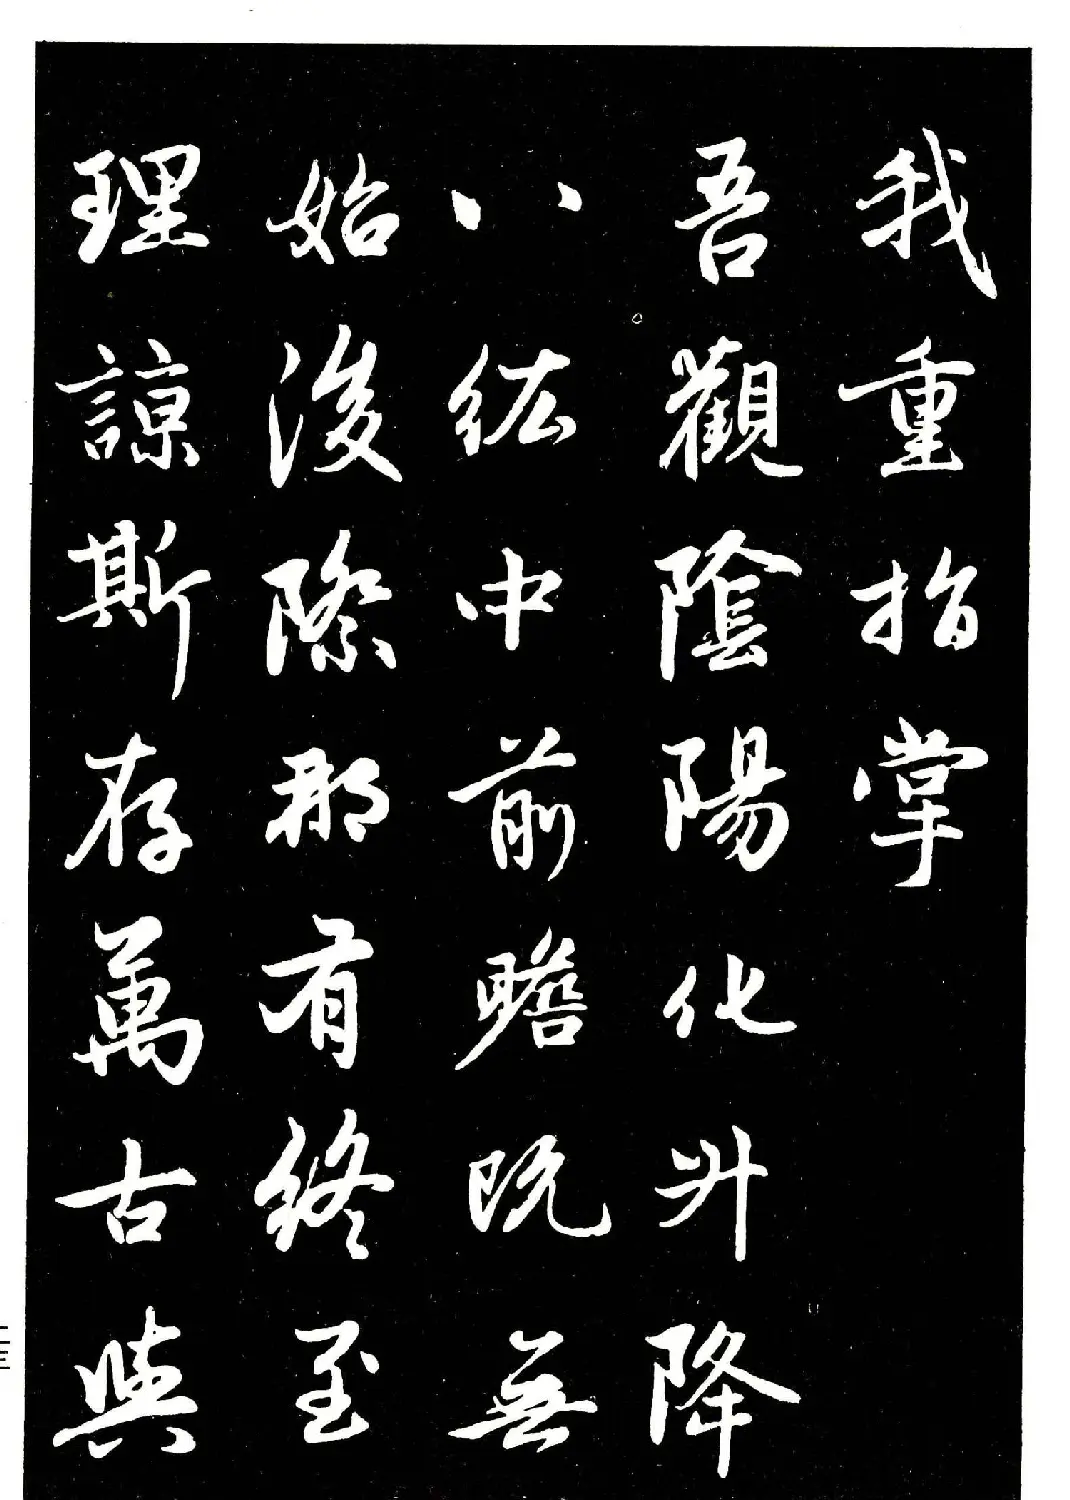 我重指掌
吾觀陰陽化升降
八紘中前瞻既無
始後際那有終至
理諒斯存萬古與